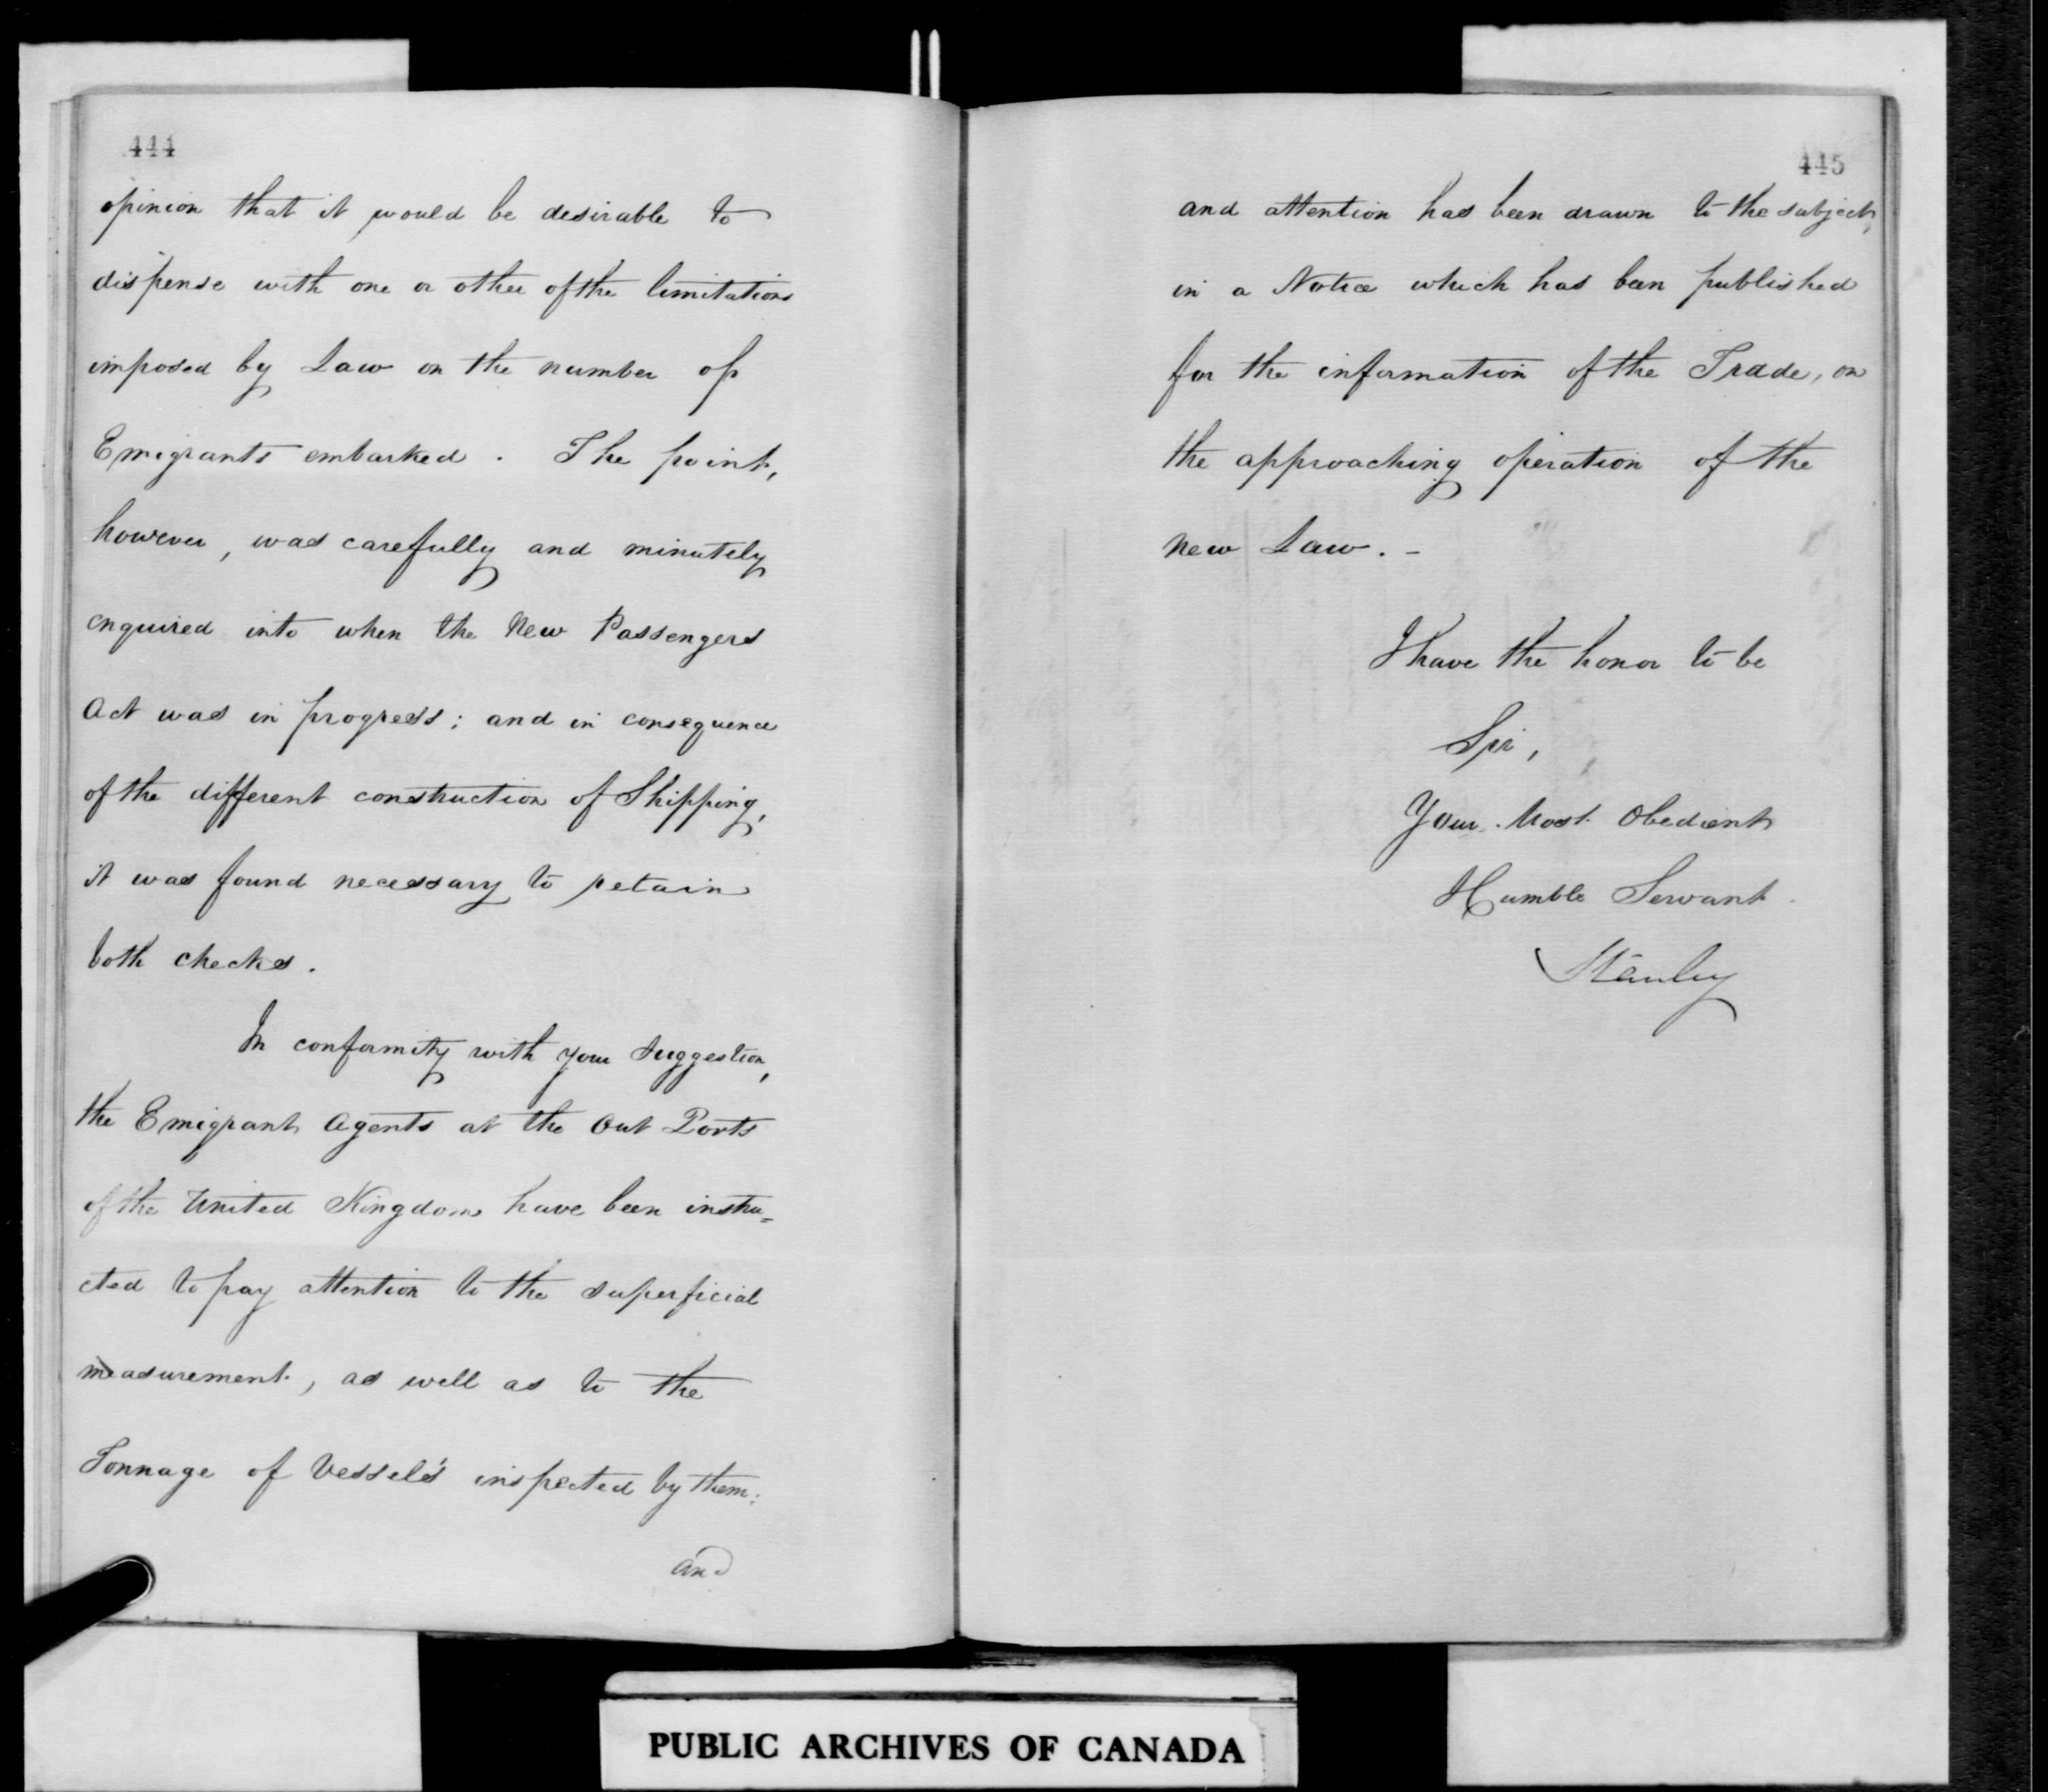 444
opinion that it would be desirable to
dispense with one or other of the limitations
imposed by Law on the number of
Emigrants embarked. The point,
however, was carefully and minutely
enquired into when the New Passengers
Act was in progress; and in consequence
of the different construction of Shipping,
it was found necessary to retain
both checks.
In conformity with your suggestion,
the Emigrant Agents at the Out Ports
of the United Kingdom have been instru=
cted to pay attention to the superficial
measurement, as well as to the
Tonnage of Vessels inspected by them;
and
445
and attention has been drawn to the subject,
in a Notice which has been published
for the information of the Trade, on
the approaching operation of the
new Law. -
I have the honor to be
Sir,
Your Most Obedient
Humble Servant.
Stanley
PUBLIC ARCHIVES OF CANADA